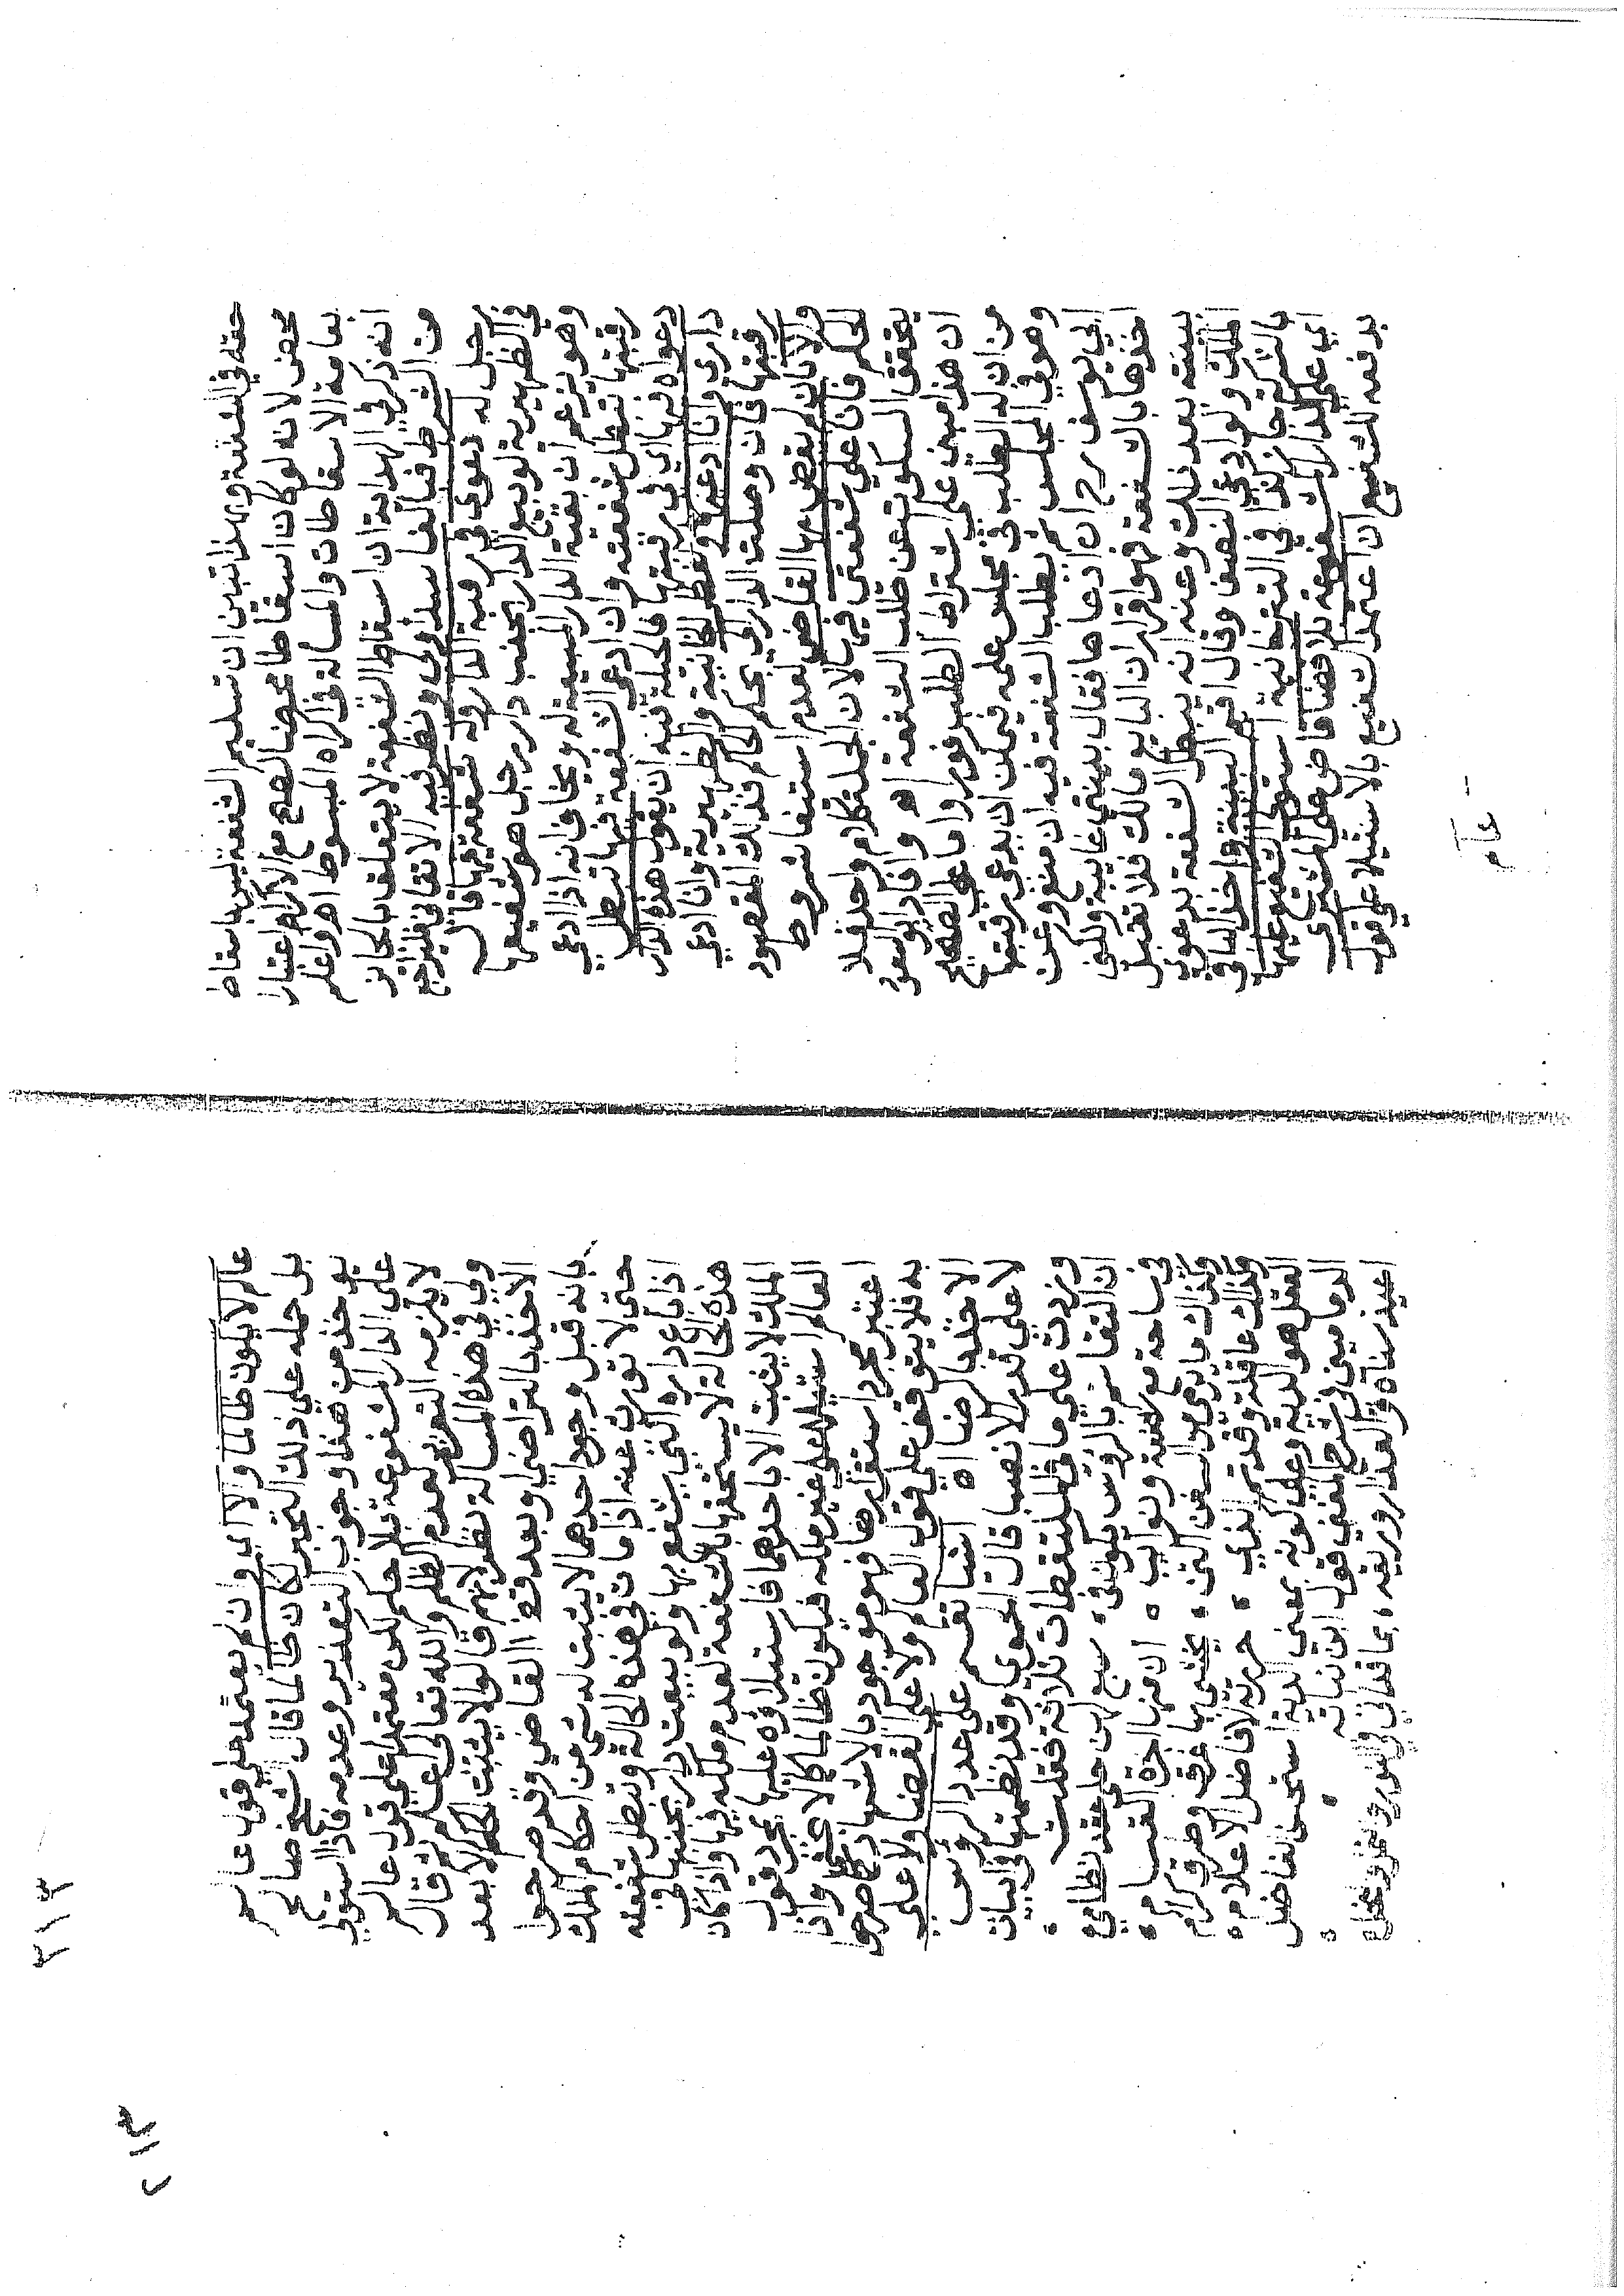 حقه في الشفعة وبهذا تبين ان تسليم الشفعة ليس باسقاط
محض لانه لو كان اسقاطا محضا لصح مع الاكراه اعتبارا
بعامة الاسقاطات والمسألة في اكراه المبسوط اهـ واعلم
انه ذكر في الهداية ان اسقاط الشفعة لا يتعلق بالجائز
من الشرط فبالفاسد اولى ونظر فيه الاتقاني فليراجع
رجل له دعوى في رقبة الدار وله شفعة فيها قال
في الظهيرية لو بيع الدار بجنب دار رجل هو شفيعها
وهو يزعم ان بقية الدار المبيعة له ويخاف انه اذا ادعى
رقبتها تبطل شفعته وان ادعى الشفعة فيها تبطل
دعواه فيها اي في رقبتها فالحيلة فيه ان يقول هذه الدار
داري وانا ادعيها الخانية والظهيرية وانا ادعي
رقبتها فان وصلت الدار الي بحكم الحاكم فذلك المقصود
والا بان لم يقض بها القاضي لعدم استيفا شروط
الحكم فانا على شفعتي فيها لان الجملة كلام واحد فلا
يتحقق السكوت عن طلب الشفعة اهـ وافاد ابو السعود
ان هذا مبني على اشتراط الطلب فورا واما على الصحيح
من ان له الطلب في مجلس علمه فيمكن ان يدعي رقبتها
وهو في المجلس ثم يطلب الشفعة فيه ان منع وعن
ابي يوسف رح ان ادعاها فقال بينتي غايبة ولكني
اخذها بالشفعة فهو اقرار ان البايع مالك فلا تقبل
بينته بعد ذلك وعنه انه يبطل الشفعة بدعوى
الملك ولو ادعى النصف وقال اقيم البينة واخذ الباقي
بالشركة جاز كذا في التترخانية استولى الشفيع عليها
اي على الدار المشفوعة بلا قضا قاض على المشتري
بدفعه للشفيع ان اعتمد الشفيع بالاستيلا على قول
عالم
عالم لا يكون ظالما والا اي وان لم يعتمد على قول عالم
بل حمله على ذلك التجبر كان ظالما قال شيخ صالح
يوخذ من هذا وجوب التعذير وعدمه فاذا استولى
على الدار المشفوعة بلا حكم لكن معتمدا على قول عالم
لا يلزمه التعزير لعدم الظلم والله تعالى اعلم ثم قال
ولي في هذه المسالة نظر لانهم قالوا لا يثبت الحكم الا بعد
الاخذ بالتراضي او بعد قضا القاضي فقد صرحوا
بانه قبل وجود احدهما لا يثبت له شي من احكام الملك
حتى لا تورث عنه اذا مات في هذه الحالة وتبطل شفعته
اذا باع داره التي يشفع بها ولو بيعت دار بجنبها في
هذه الحالة لا يستحقها بالشفعة لعدم ملكه فيها واذا كان
الملك لا يثبت الا باحدهما فاستيلاؤه عليها بمجرد قول
العالم استيلا على غير ملكه فيكون ظالما كما لا يخفى واذا
اعتبر مجرد استقرارها فهو موجود بالاشهاد كما صرحوا
به فلا يتوقف على قول العالم ولا على القضا ولا على
الاخذ بالرضا اهـ اشيا تقسم على عدد الرؤس
لا على قدر الانصبا قال الحموي وقد نظمتها في ابيات
وزدت على ما في الملتقطات ثلاثة فقلت
ان التقاسم بالرؤس يكون في سبع لهن حلى عقد نظامي
في ساحة مع شفعة ونوايب ان منها اجرة القسام
وكذاك ما يرمى من السفن التي يخشى بها غرق وطرق كرام
وكذاك عاقلة وقد تم الذي حررته لافاضل الاعلام
العقل هو الدية وعلى كونه بمعنى الدية استحسن الفاضل
الدماميني في شرح المغني قول ابن نباتة
اعيذ سناه والعذار وريقه بما قد اتى في النور والنمل والنحل
٣١٣
٢١٣